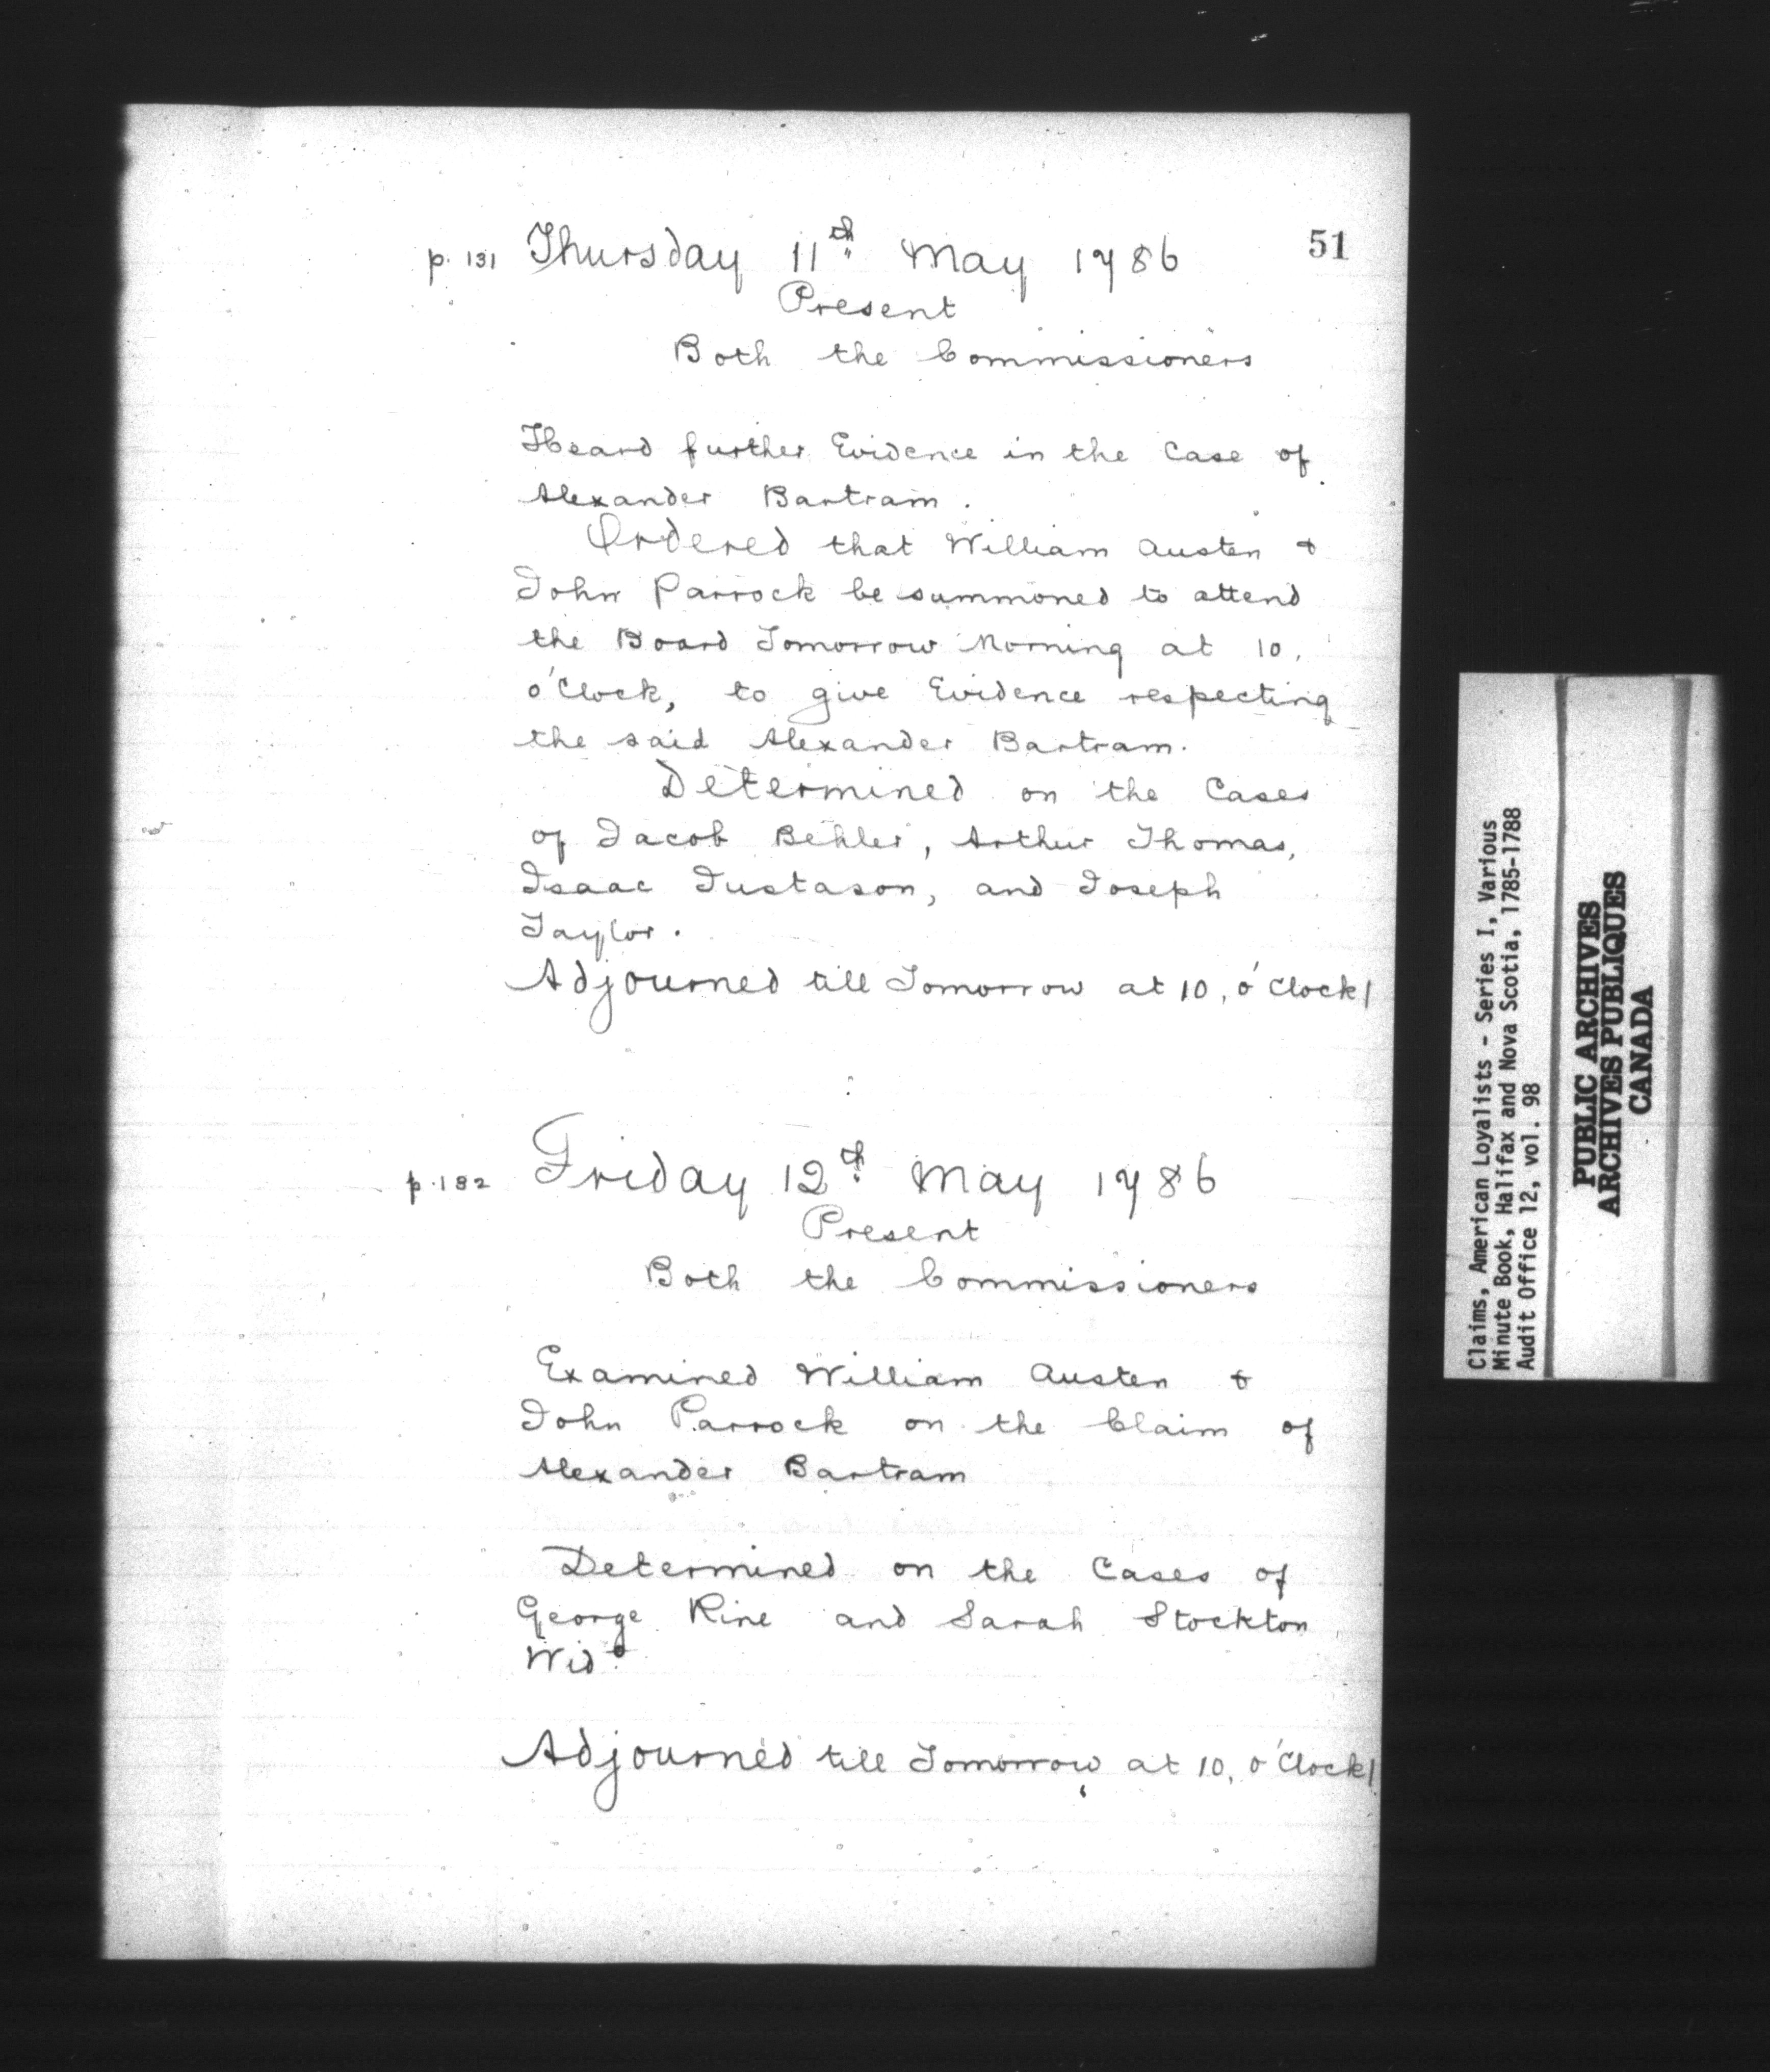 51
p. 131 Thursday 11th May 1786
Present
Both the Commissioners
Heard further Evidence in the Case of
Alexander Bartram.
Ordered that William Austen &
John Parrock be summoned to attend
the Board Tomorrow Morning at 10,
o'Clock, to give Evidence respecting
the said Alexander Bartram.
Determined on the Cases
of Jacob Behler, Arthur Thomas,
Isaac Justason, and Joseph
Taylor.
Adjourned till Tomorrow at 10, o'Clock/
p. 132 Friday 12th May 1786
Present
Both the Commissioners
Examined William Austen &
John Parrock on the Claim of
Alexander Bartram
Determined on the Cases of
George Rine and Sarah Stockton
Wido
Adjourned till Tomorrow at 10, o'Clock/
Claims, American Loyalists - Series I, Various
Minute Book, Halifax and Nova Scotia, 1785-1788
Audit Office 12, vol. 98
PUBLIC ARCHIVES
ARCHIVES PUBLIQUES
CANADA